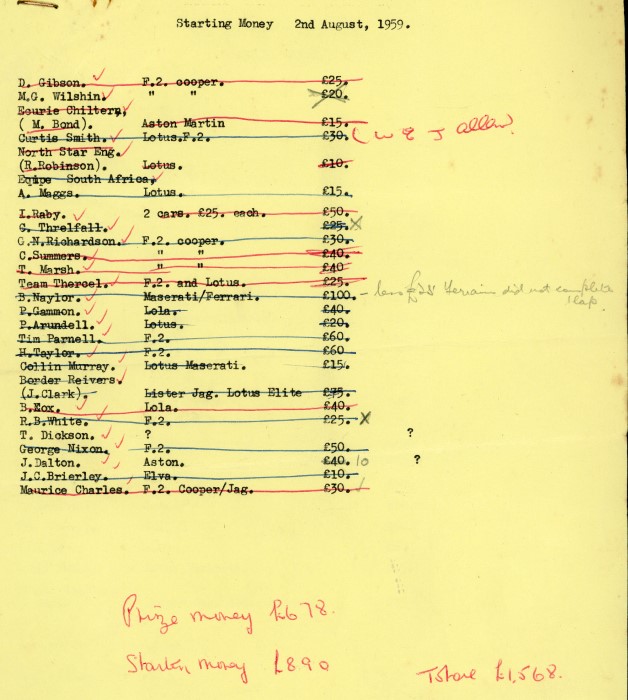 Starting Money 2nd August, 1959.
D. Gibson. F.2. cooper. £25.
M.G. Wilshin. " " £20.
Ecurie Chiltern,
( M. Bond). Aston Martin £15.
Curtis Smith. Lotus.F.2. £30.
North Star Eng.
(R.Robinson). Lotus. £10.
Equipe South Africa.
A. Maggs. Lotus. £15.
I.Raby. 2 cars. £25. each. £50.
G. Threlfall. £25. X
G.N.Richardson. F.2. cooper. £30.
C.Summers. " " £40.
T. Marsh. " " £40
Team Thercel. F.2. and Lotus. £25.
B.Naylor. Maserati/Ferrari. £100. - less £25 Ferrari did not complete 1 lap.
P.Gammon. Lola. £40.
P.Arundell. Lotus. £20.
Tim Parnell. F.2. £60.
H.Taylor. F.2. £60
Collin Murray. Lotus Maserati. £15.
Border Reivers.
(J.Clark). Lister Jag. Lotus Elite £75.
B.Fox. Lola. £40.
R.B.White. F.2. £25. X
T. Dickson. ? ?
George Nixon. F.2. £50.
J.Dalton. Aston. £40. 10 ?
J.C.Brierley. Elva. £10.
Maurice Charles. F.2. Cooper/Jag. £30.
Prize money £678.
Starting money £890
Total £1,568.